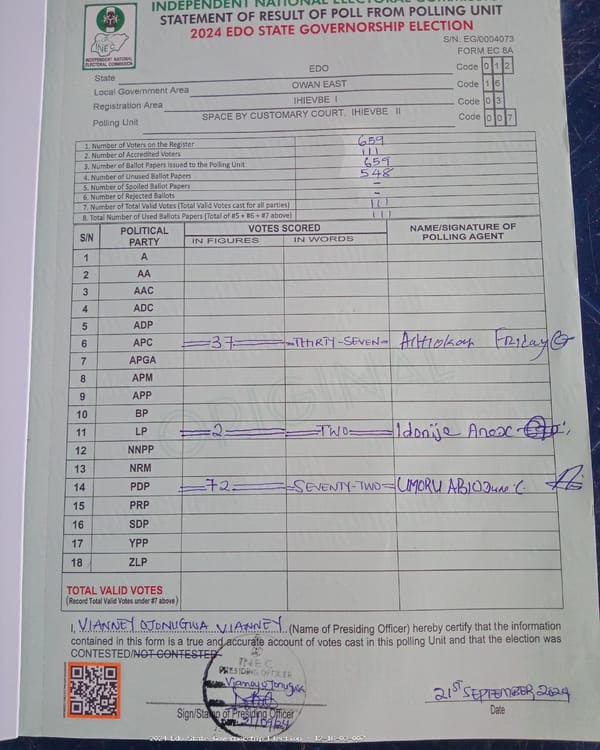 INDEPENDENT NATIONAL ELECTORAL COMMISSION
STATEMENT OF RESULT OF POLL FROM POLLING UNIT
2024 EDO STATE GOVERNORSHIP ELECTION
INEC
INDEPENDENT NATIONAL
ELECTORAL COMMISSION
S/N: EG/0004073
FORM EC 8A
State EDO Code 0 1 2
Local Government Area OWAN EAST Code 1 6
Registration Area IHIEVBE I Code 0 3
Polling Unit SPACE BY CUSTOMARY COURT, IHIEVBE II Code 0 0 7
1. Number of Voters on the Register 659
2. Number of Accredited Voters 111
3. Number of Ballot Papers Issued to the Polling Unit 659
4. Number of Unused Ballot Papers 548
5. Number of Spoiled Ballot Papers -
6. Number of Rejected Ballots -
7. Number of Total Valid Votes (Total Valid Votes cast for all parties) 111
8. Total Number of Used Ballots Papers (Total of #5 + #6 + #7 above) 111
S/N POLITICAL PARTY VOTES SCORED NAME/SIGNATURE OF POLLING AGENT
IN FIGURES IN WORDS
1 A
2 AA
3 AAC
4 ADC
5 ADP
6 APC 37 THIRTY-SEVEN Friday
7 APGA
8 APM
9 APP
10 BP
11 LP 2 TWO Idonije
12 NNPP
13 NRM
14 PDP 72 SEVENTY-TWO UMORU
15 PRP
16 SDP
17 YPP
18 ZLP
ORIGINAL
TOTAL VALID VOTES
(Record Total Valid Votes under #7 above)
I, VIANNEY OJONUGWA VIANNEY (Name of Presiding Officer) hereby certify that the information
contained in this form is a true and accurate account of votes cast in this polling Unit and that the election was
CONTESTED/NOT CONTESTED
INEC
PRESIDING OFFICER
Vianney Ojonugwa
21/09/24
Sign/Stamp of Presiding Officer
21ST SEPTEMBER 2024
Date